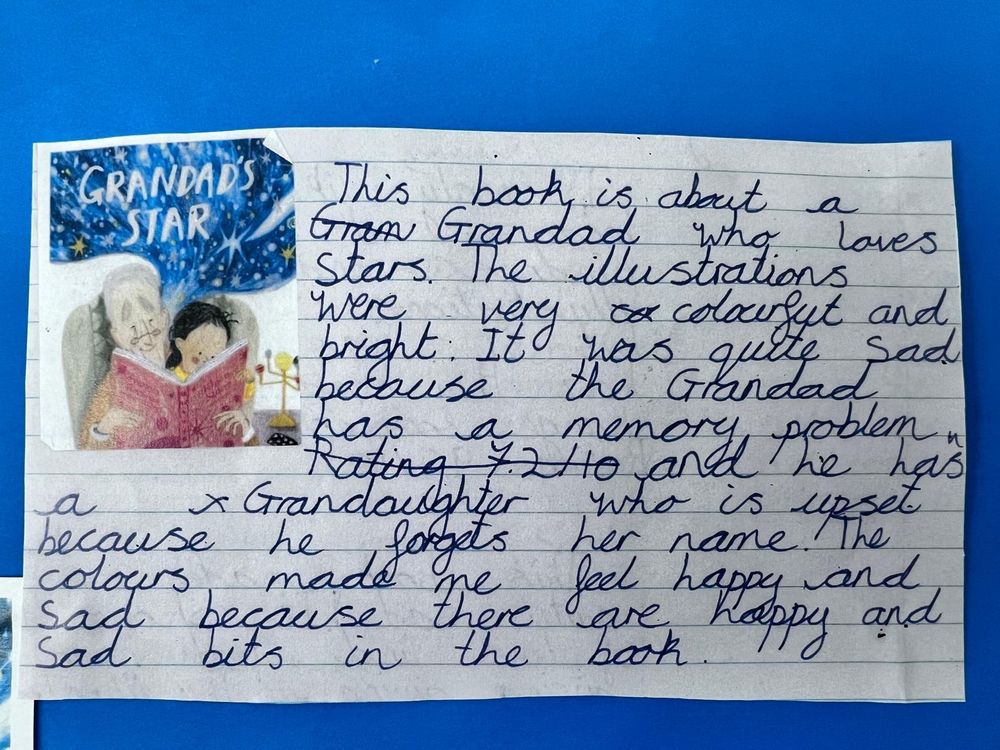 GRANDAD'S
STAR
This book is about a
Gram Grandad who loves
Stars. The illustrations
were very co colourful and
bright. It was quite sad
because the Grandad
has a memory problem
Rating 7.2/10 and he has
a x Grandaughter who is upset
because he forgets her name. The
colours made me feel happy and
Sad because there are happy and
Sad bits in the book.